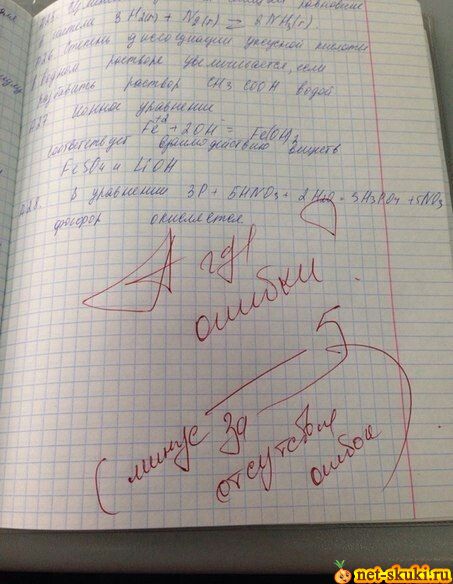 равновесие
системы 3H2(г) + N2(г) = 2NH3(г).
Степень диссоциации уксусной кислоты
в водном растворе увеличивается, если
разбавить раствор CH3COOH водой
A27 Ионное уравнение
Fe+2 + 2OH- = Fe(OH)2
соответствует взаимодействию веществ
FeSO4 и LiOH
A28. В уравнении 3P + 5HNO3 + 2H2O = 3H3PO4 + 5NO
фосфор окисляется
А где
ошибки ?
5
(минус за
отсутствие
ошибок)
net-skuki.ru